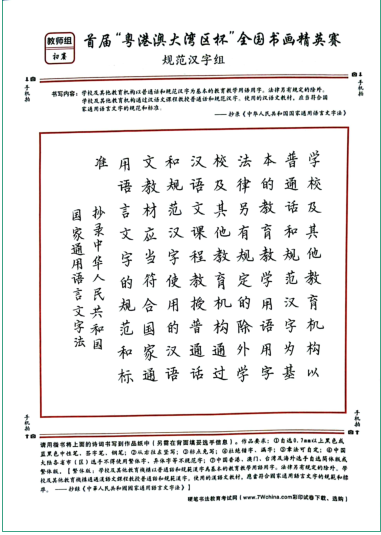 教师组
初赛
首届“粤港澳大湾区杯”全国书画精英赛
规范汉字组
手机拍
手机拍
书写内容：学校及其他教育机构以普通话和规范汉字为基本的教育教学用语用字。法律另有规定的除外。
学校及其他教育机构通过汉语文课程教授普通话和规范汉字。使用的汉语文教材，应当符合国
家通用语言文字的规范和标准。
——抄录《中华人民共和国国家通用语言文字法》
学校及其他教育机构以
普通话和规范汉字为基
本的教育教学用语用字
法律另有规定的除外学
校及其他教育机构通过
汉语文课程教授普通话
和规范汉字使用的汉语
文教材应当符合国家通
用语言文字的规范和标
准
抄录中华人民共和国
国家通用语言文字法
手机拍
手机拍
请用楷书将上面的诗词书写到作品纸中（另需在背面填妥选手信息）。作品要求：①自选0.7mm以上黑色或
蓝黑色中性笔、签字笔、钢笔；②从右往左竖写；③标点免写；④杜绝错字、漏字；⑤章法可自定；⑥中国
大陆各省市（区）选手不得使用繁体字、异体字等不规范字；⑦中国香港、澳门、台湾及海外选手自选简体版或
繁体版。【繁体版：學校及其他教育機構以普通話和規範漢字爲基本的教育教學用語用字。法律另有規定的除外。學
校及其他教育機構通過漢語文課程教授普通話和規範漢字。使用的漢語文教材，應當符合國家通用語言文字的規範和標
準。——抄録《中華人民共和國國家通用語言文字法》】
硬笔书法教育考试网（www.7Wchina.com彩印试卷下载、选购）